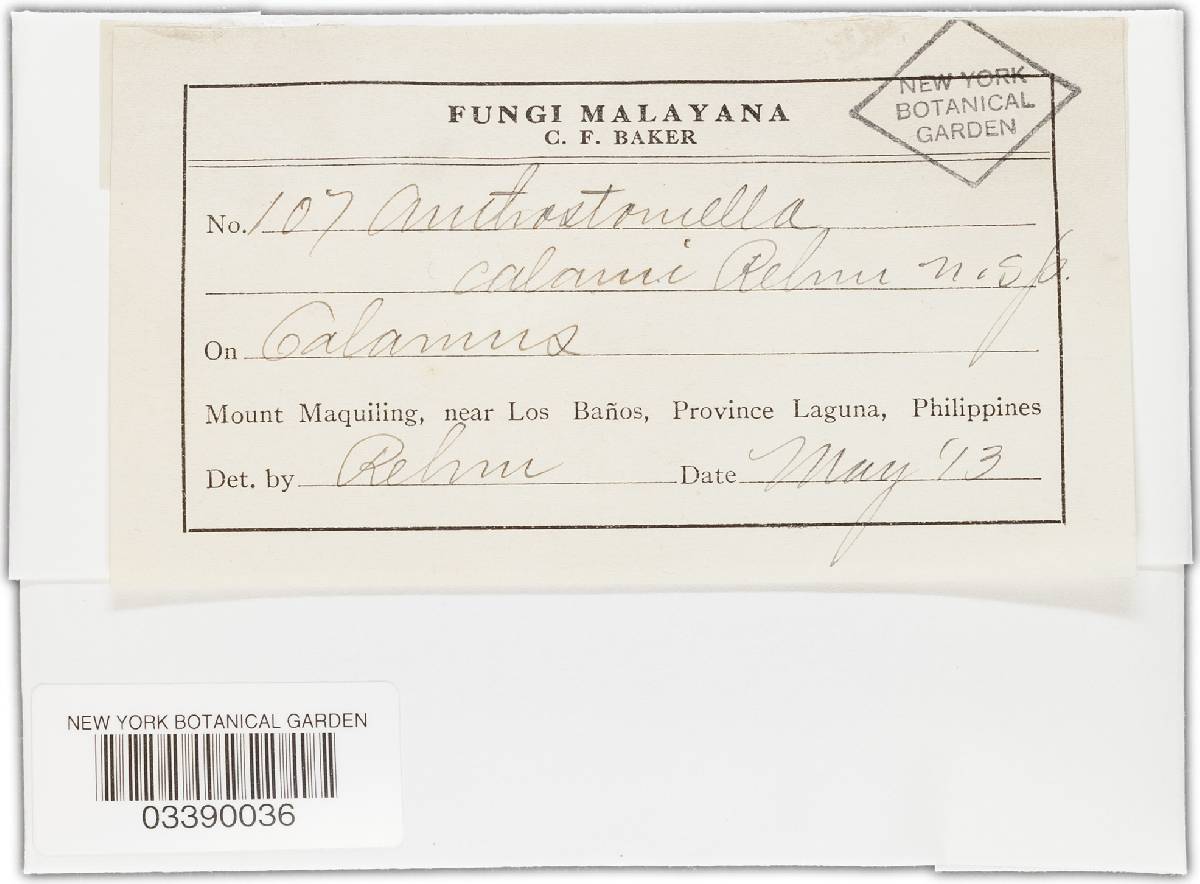 FUNGI MALAYANA
C. F. BAKER
NEW YORK
BOTANICAL
GARDEN
No. 107 Anthostomella
calami Rehm n. sp.
On Calamus
Mount Maquiling, near Los Baños, Province Laguna, Philippines
Det. by Rehm Date May '13
NEW YORK BOTANICAL GARDEN
03390036